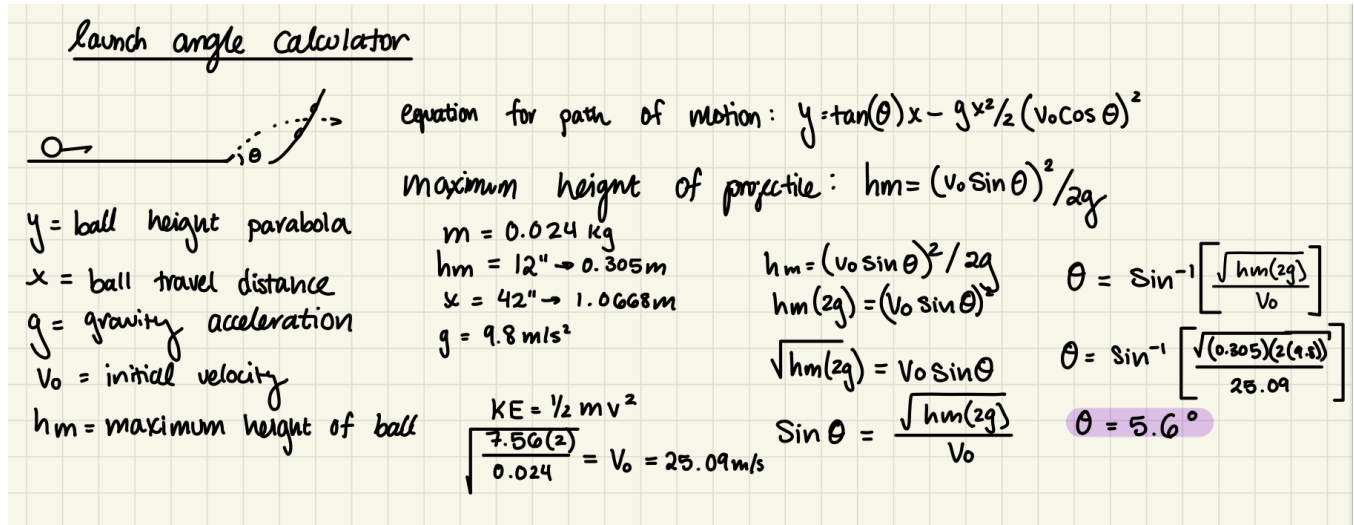 launch angle calculator
θ
equation for path of motion: y=tan(θ)x - gx²/2(V₀cos θ)²
maximum height of projectile: hm = (V₀ sin θ)²/2g
y = ball height parabola
x = ball travel distance
g = gravity acceleration
V₀ = initial velocity
hm = maximum height of ball
m = 0.024 kg
hm = 12" → 0.305m
x = 42" → 1.0668m
g = 9.8 m/s²
KE = ½ mv²
√(7.56(2)/0.024) = V₀ = 25.09m/s
hm = (V₀ sin θ)²/2g
hm(2g) = (V₀ sin θ)²
√hm(2g) = V₀ sin θ
Sin θ = √hm(2g) / V₀
θ = Sin⁻¹[√hm(2g) / V₀]
θ = Sin⁻¹[√(0.305)(2(9.8)) / 25.09]
θ = 5.6°